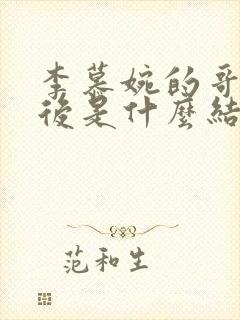 李慕婉的哥
後是什麼結
范和生